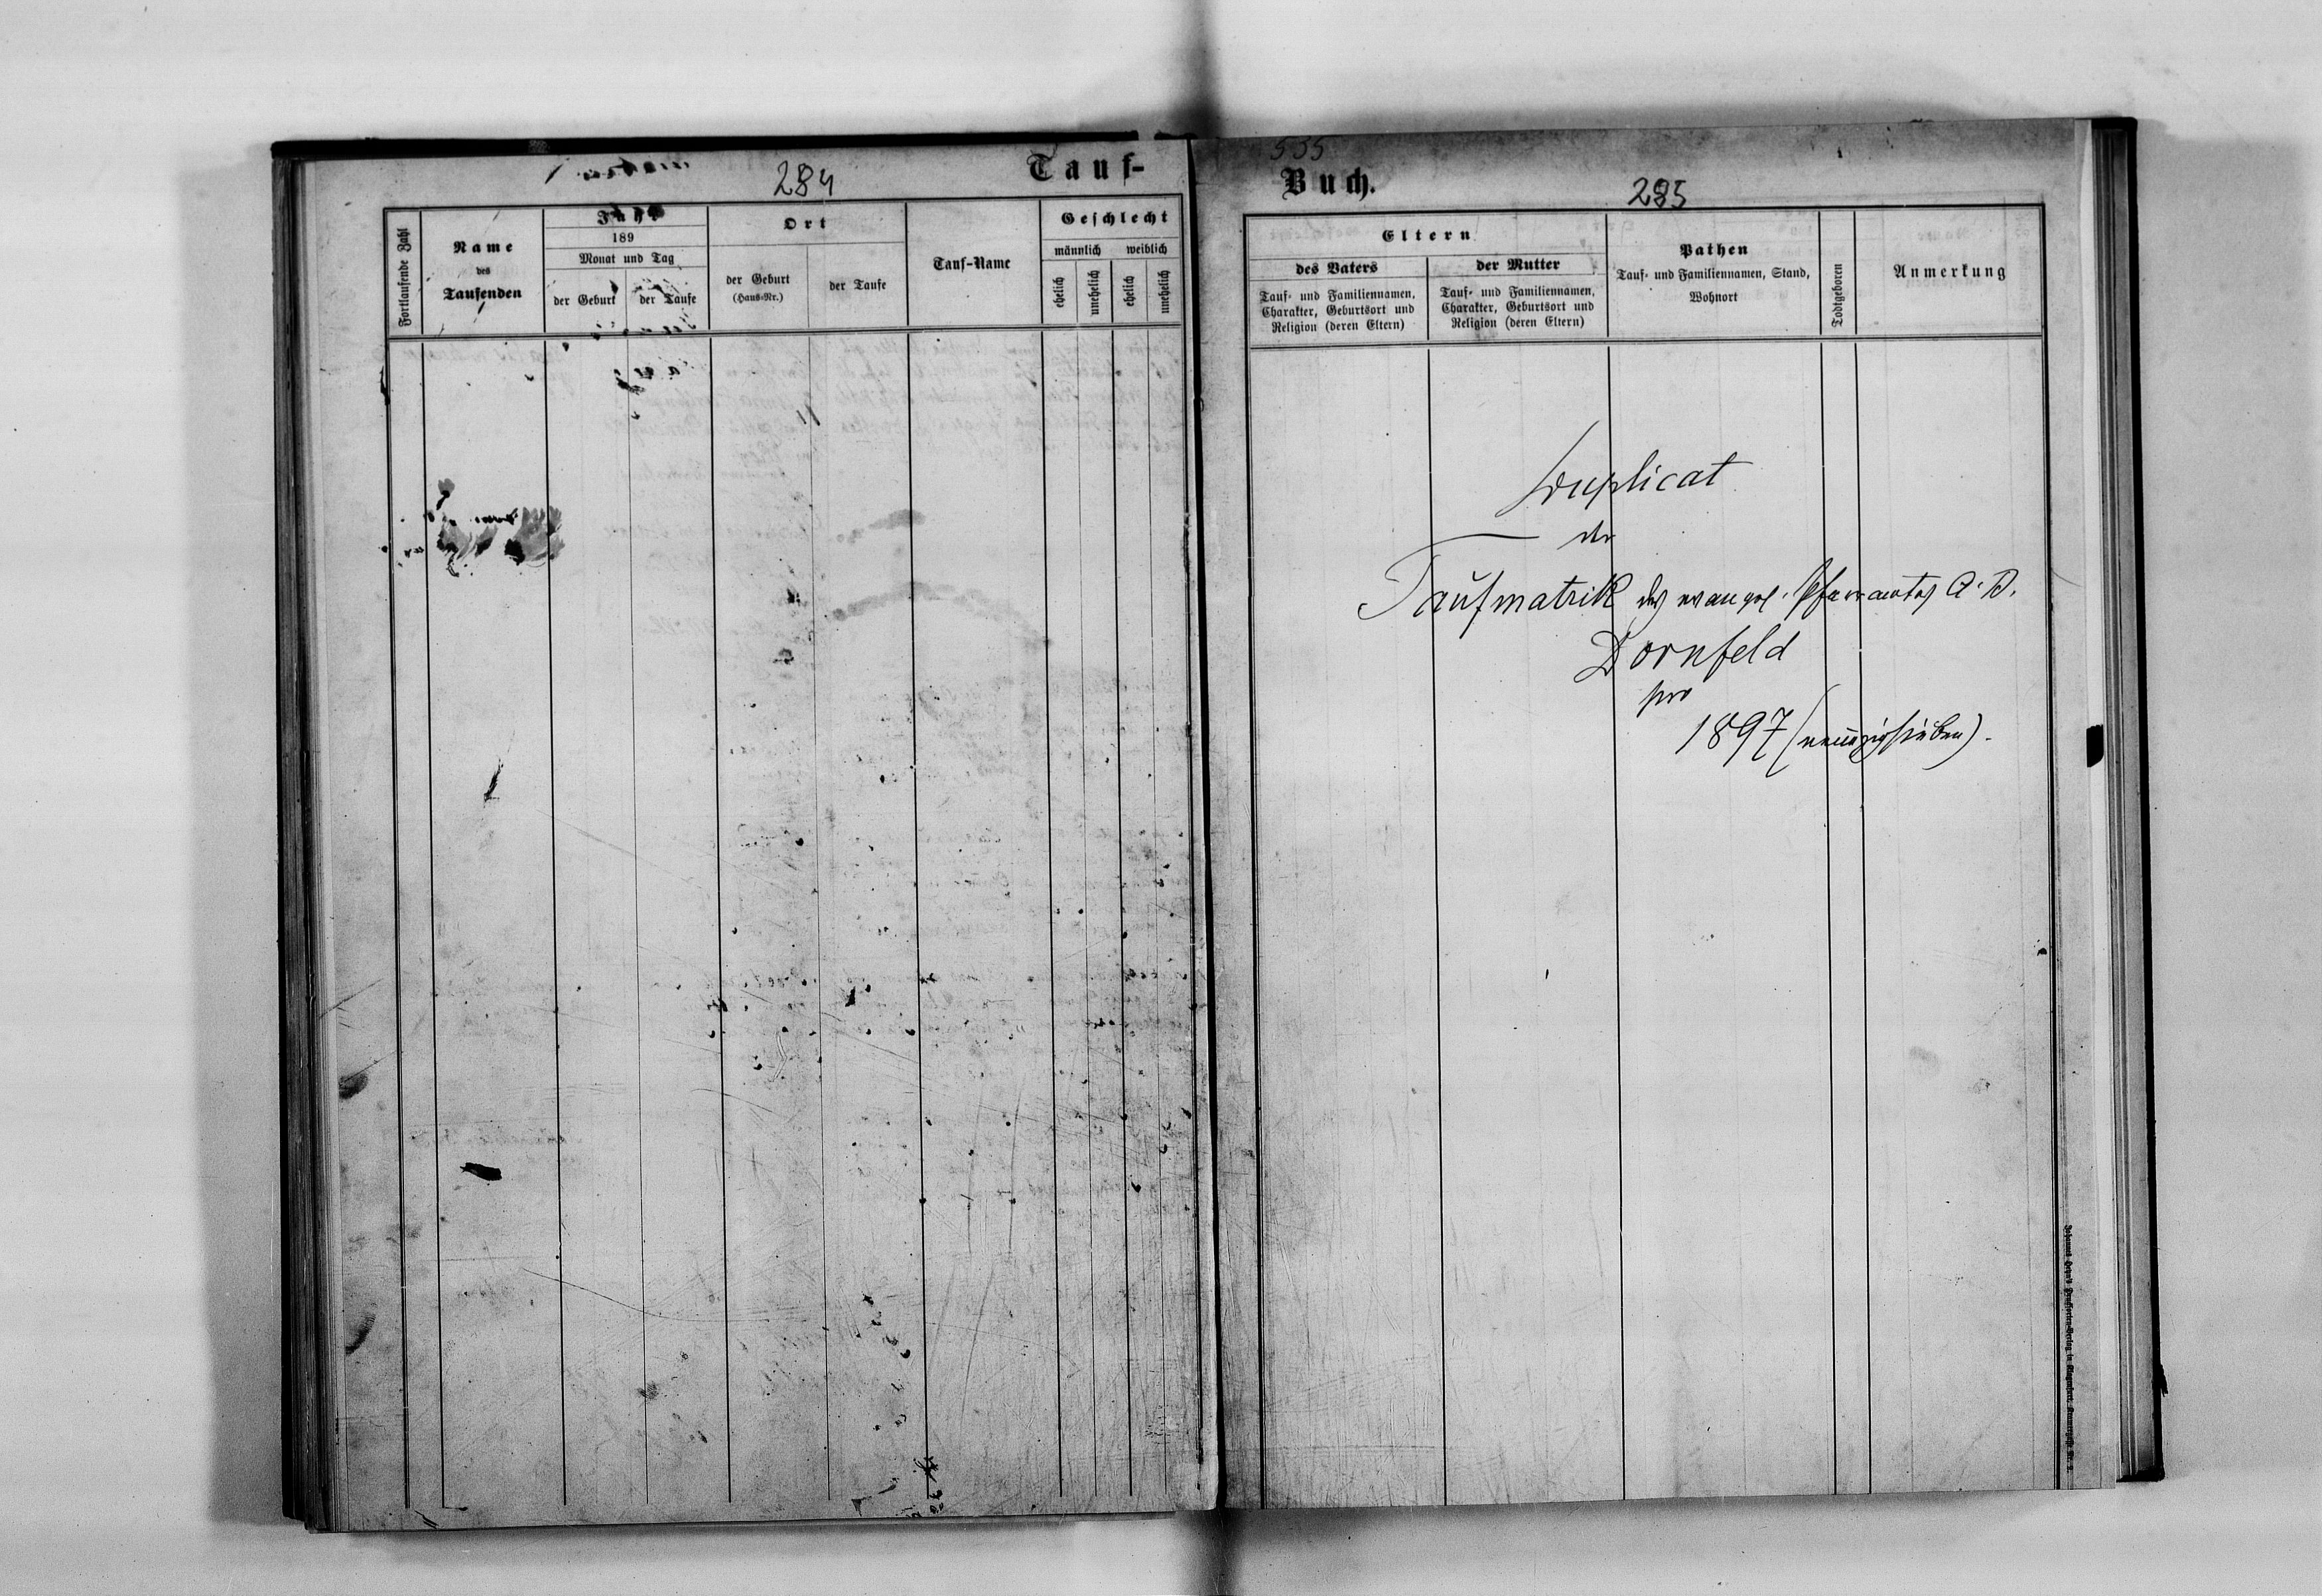 284
Tauf-
Fortlaufende Zahl
Name
des
Taufenden
Jahr
189
Monat und Tag
der Geburt
der Taufe
Ort
der Geburt
(Haus-Nr.)
der Taufe
Tauf-Name
Geschlecht
männlich weiblich
ehelich
unehelich
ehelich
unehelich
535
Buch.
285
Eltern
des Vaters
Tauf- und Familiennamen,
Charakter, Geburtsort und
Religion (deren Eltern)
der Mutter
Tauf- und Familiennamen,
Charakter, Geburtsort und
Religion (deren Eltern)
Pathen
Tauf- und Familiennamen, Stand,
Wohnort
Todtgeboren
Anmerkung
Duplicat
der
Taufmatrik des evangel. Pfarramtes A. B.
Dornfeld
pro
1897 (neunzigsieben).